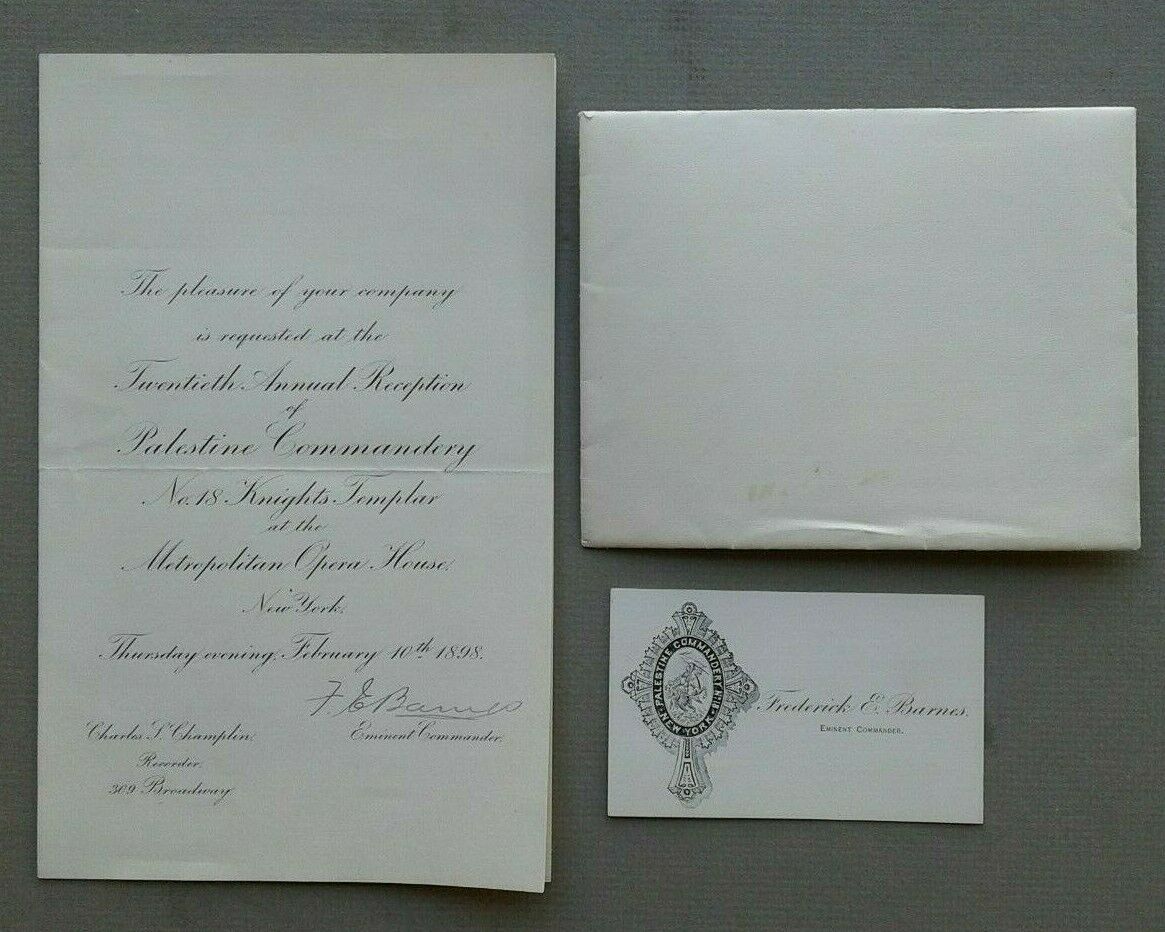 The pleasure of your company
is requested at the
Twentieth Annual Reception
of
Palestine Commandery
No. 18 Knights Templar
at the
Metropolitan Opera House,
New York.
Thursday evening, February 10th 1898.
F. E. Barnes
Eminent Commander.
Charles S. Champlin,
Recorder.
309 Broadway
PALESTINE COMMANDERY No. 18
NEW YORK
Frederick E. Barnes.
EMINENT COMMANDER.